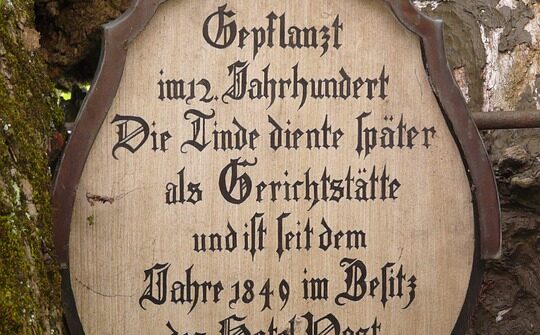 Gepflanzt
im 12. Jahrhundert
Die Linde diente später
als Gerichtstätte
und ist seit dem
Jahre 1849 im Besitz
des Hotel Post